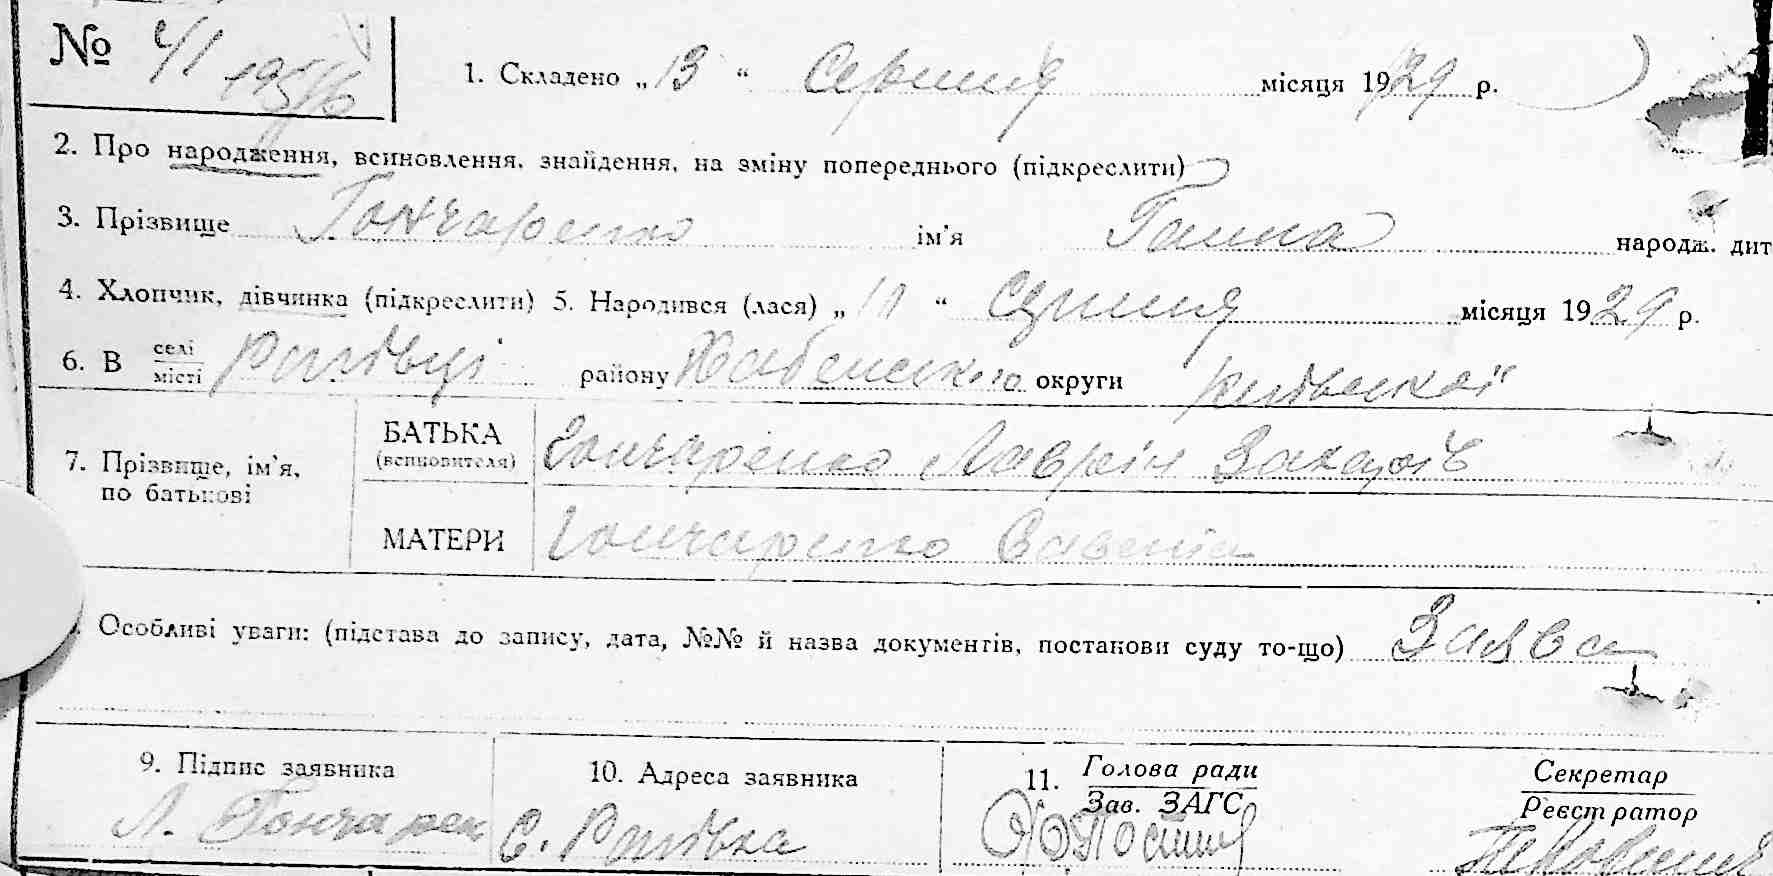 № 41
1. Складено „13“ Серпня місяця 1929 р.
2. Про народження, всиновлення, знайдення, на зміну попереднього (підкреслити)
3. Прізвище Гончаренко ім’я Ганна народж. дит
4. Хлопчик, дівчинка (підкреслити) 5. Народився (лася) „11“ Серпня місяця 1929 р.
6. В селі місті району Хабенського округи Київської
7. Прізвище, ім’я, по батькові
БАТЬКА (всиновителя) Гончаренко Лаврін Захарів
МАТЕРИ Гончаренко
Особливі уваги: (підстава до запису, дата, №№ й назва документів, постанови суду то-що) Заява
9. Підпис заявника
10. Адреса заявника
11. Голова ради
Зав. ЗАГС
Секретар
Реєстратор
Л. Гончарен
с.